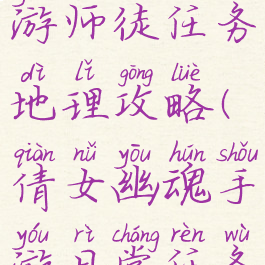 游师徒任务
dì lǐ gōng lüè
地理攻略(
qiàn nǚ yōu hún shǒu
倩女幽魂手
yóu rì cháng rèn wù
游日常任务